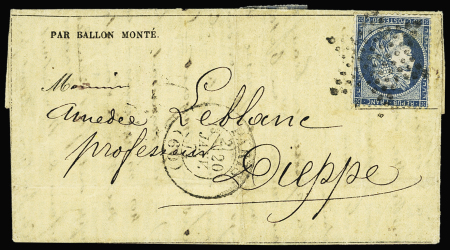 PAR BALLON MONTÉ.
Monsieur
Amedée Leblanc
professeur
Dieppe